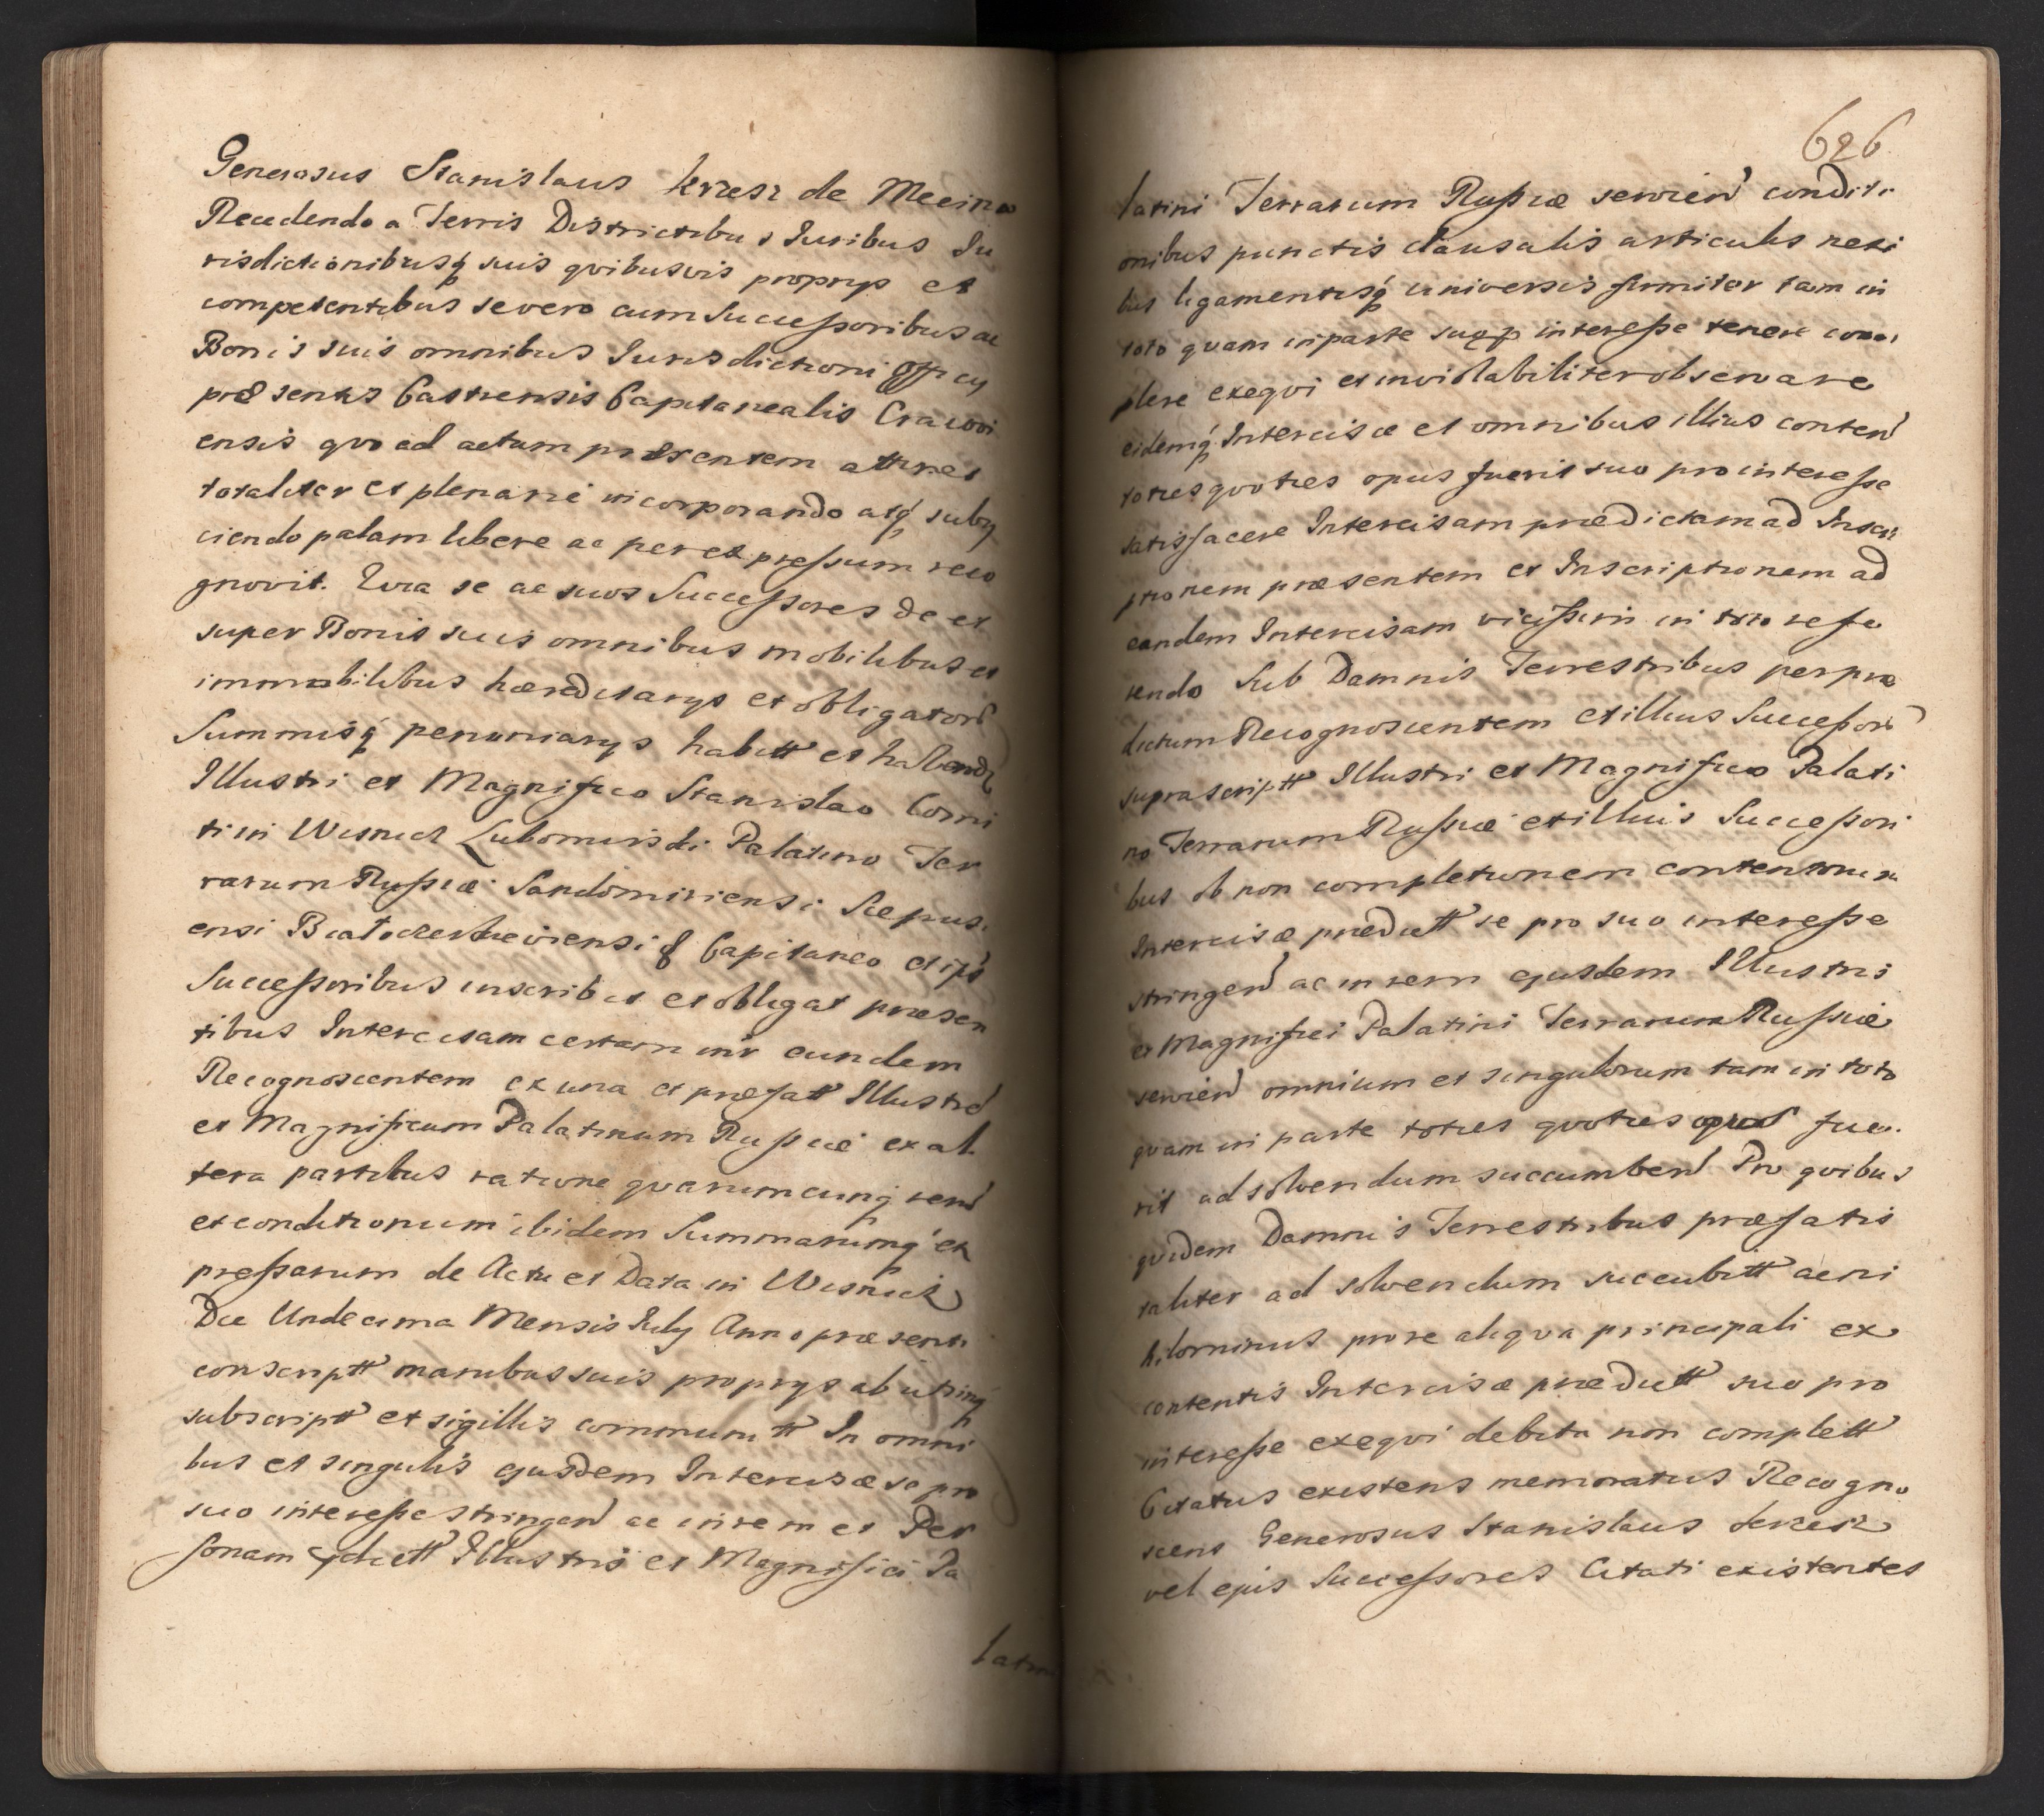 Generosus Stanislaus Krzesz de Mecina
Recedendo a Terris Districtibus Iuribus Iu
risdictionibusq suis qvibusvis proprys et
competentibus se vero cum Successoribus ac
Bonis suis omnibus Iurisdictioni Offcy
præsentis Castrensis Capitanealis Cracovi
ensis qvo ad actum præsentem attinet
totaliter et plenarie incorporando atq suby
ciendo palam libere ac per expressum reco
gnovit. Qvia se ac suos Successores de et
super Bonis suis omnibus mobilibus et
immobilibus hæreditarys et obligatorı
Summisq pecuniarys habitt et habend
Illustri et Magnifico Stanislao Comi
ti in Wisnicz Lubomirski Palatino Ter
rarum Russiæ Sandomiriensi Scepusi
ensi Biało &c Capitaneo et ips
Successoribus inscribit et obligat præsen
tibus Intercisam certam intr eundem
Recognoscentem ex una et præfatt Illustre
et Magnificum Palatinum Russiæ ex al
tera partibus ratione qvarumcunq rerum
et conditionum ibidem Summarumq ex
pressarum de Actu et Data in Wisnicz
Die Undecima Mensis July Anno præsenti
conscriptt manibus suis proprys ab utrinq
subscriptt et sigillis communitt In omni
bus et singulis ejusdem Intercisæ se pro
suo interesse stringen ac in rem et Per
sonam Illustris et Magnifici Pa
latini
626
latini Terrarum Russiæ servien conditi
onibus punctis clausulis articulis nexi
bus ligamentisq universis firmiter tam in
toto qvam in parte suo interesse tenere com
plere exeqvi et inviolabiliter observare
eidemq Intercisæ et omnibus illius conten
toties qvoties opus fuerit suo pro interesse
satisfacere Intercisam prædictam ad Inscri
ptionem præsentem et Inscriptionem ad
eandem Intercisam vicissim in toto refe
rendo Sub Damnis Terrestribus per præ
dictum Recognoscentem et illius Successorı
suprascriptt Illustri et Magnifico Palati
no Terrarum Russiæ et illius Successori
bus ob non completionem contentorum
Intercisæ prædictt se pro suo interesse
stringen ac in rem ejusdem Illustris
et Magnifici Palatini Terrarum Russiæ
servien omnium et singulorum tam in toto
qvam in parte toties qvoties opus fue
rit ad solvendum succumben Pro qvibus
qvidem Damnis Terrestribus præfatis
taliter ad solvendum succubitt ac ni
hilominus pro re aliqva principali ex
contentis Intercisæ prædictt suo pro
interesse exeqvi debita non complett
Citatus existens memoratus Recogno
scens Generosus Stanislaus Krzesz
vel ejus Successores Citati existentes